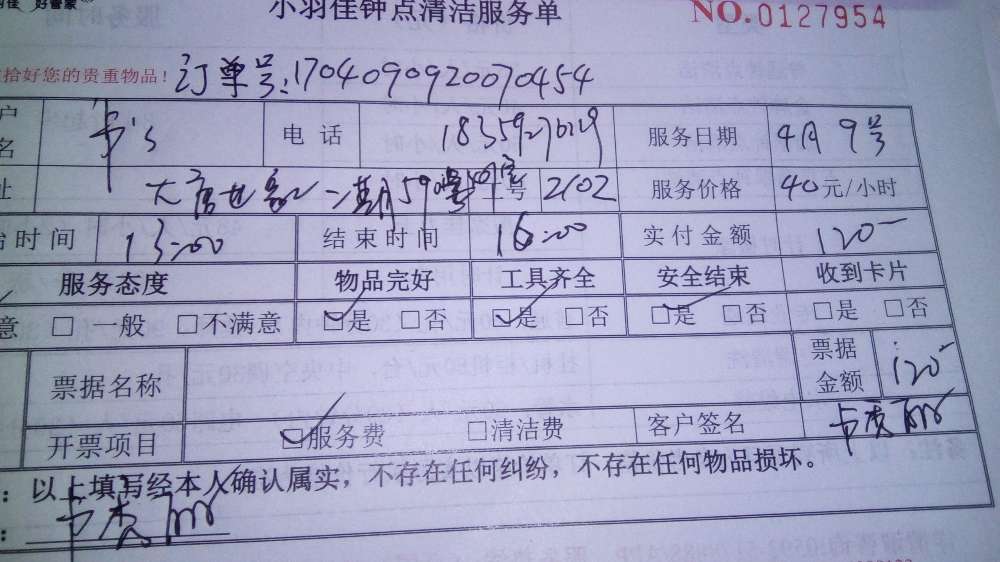 好管家
小羽佳钟点清洁服务单
NO.0127954
拾好您的贵重物品! 订单号:1704090920070454
户名 电话 服务日期 4月9号
址 二期 号 2102 服务价格 40元/小时
时间 13:00 结束时间 16:00 实付金额 120-
服务态度 物品完好 工具齐全 安全结束 收到卡片
意 □一般 □不满意 ☑是 □否 ☑是 □否 ☑是 □否 □是 □否
票据名称 票据金额 120-
开票项目 ☑服务费 □清洁费 客户签名
:以上填写经本人确认属实,不存在任何纠纷,不存在任何物品损坏。
: